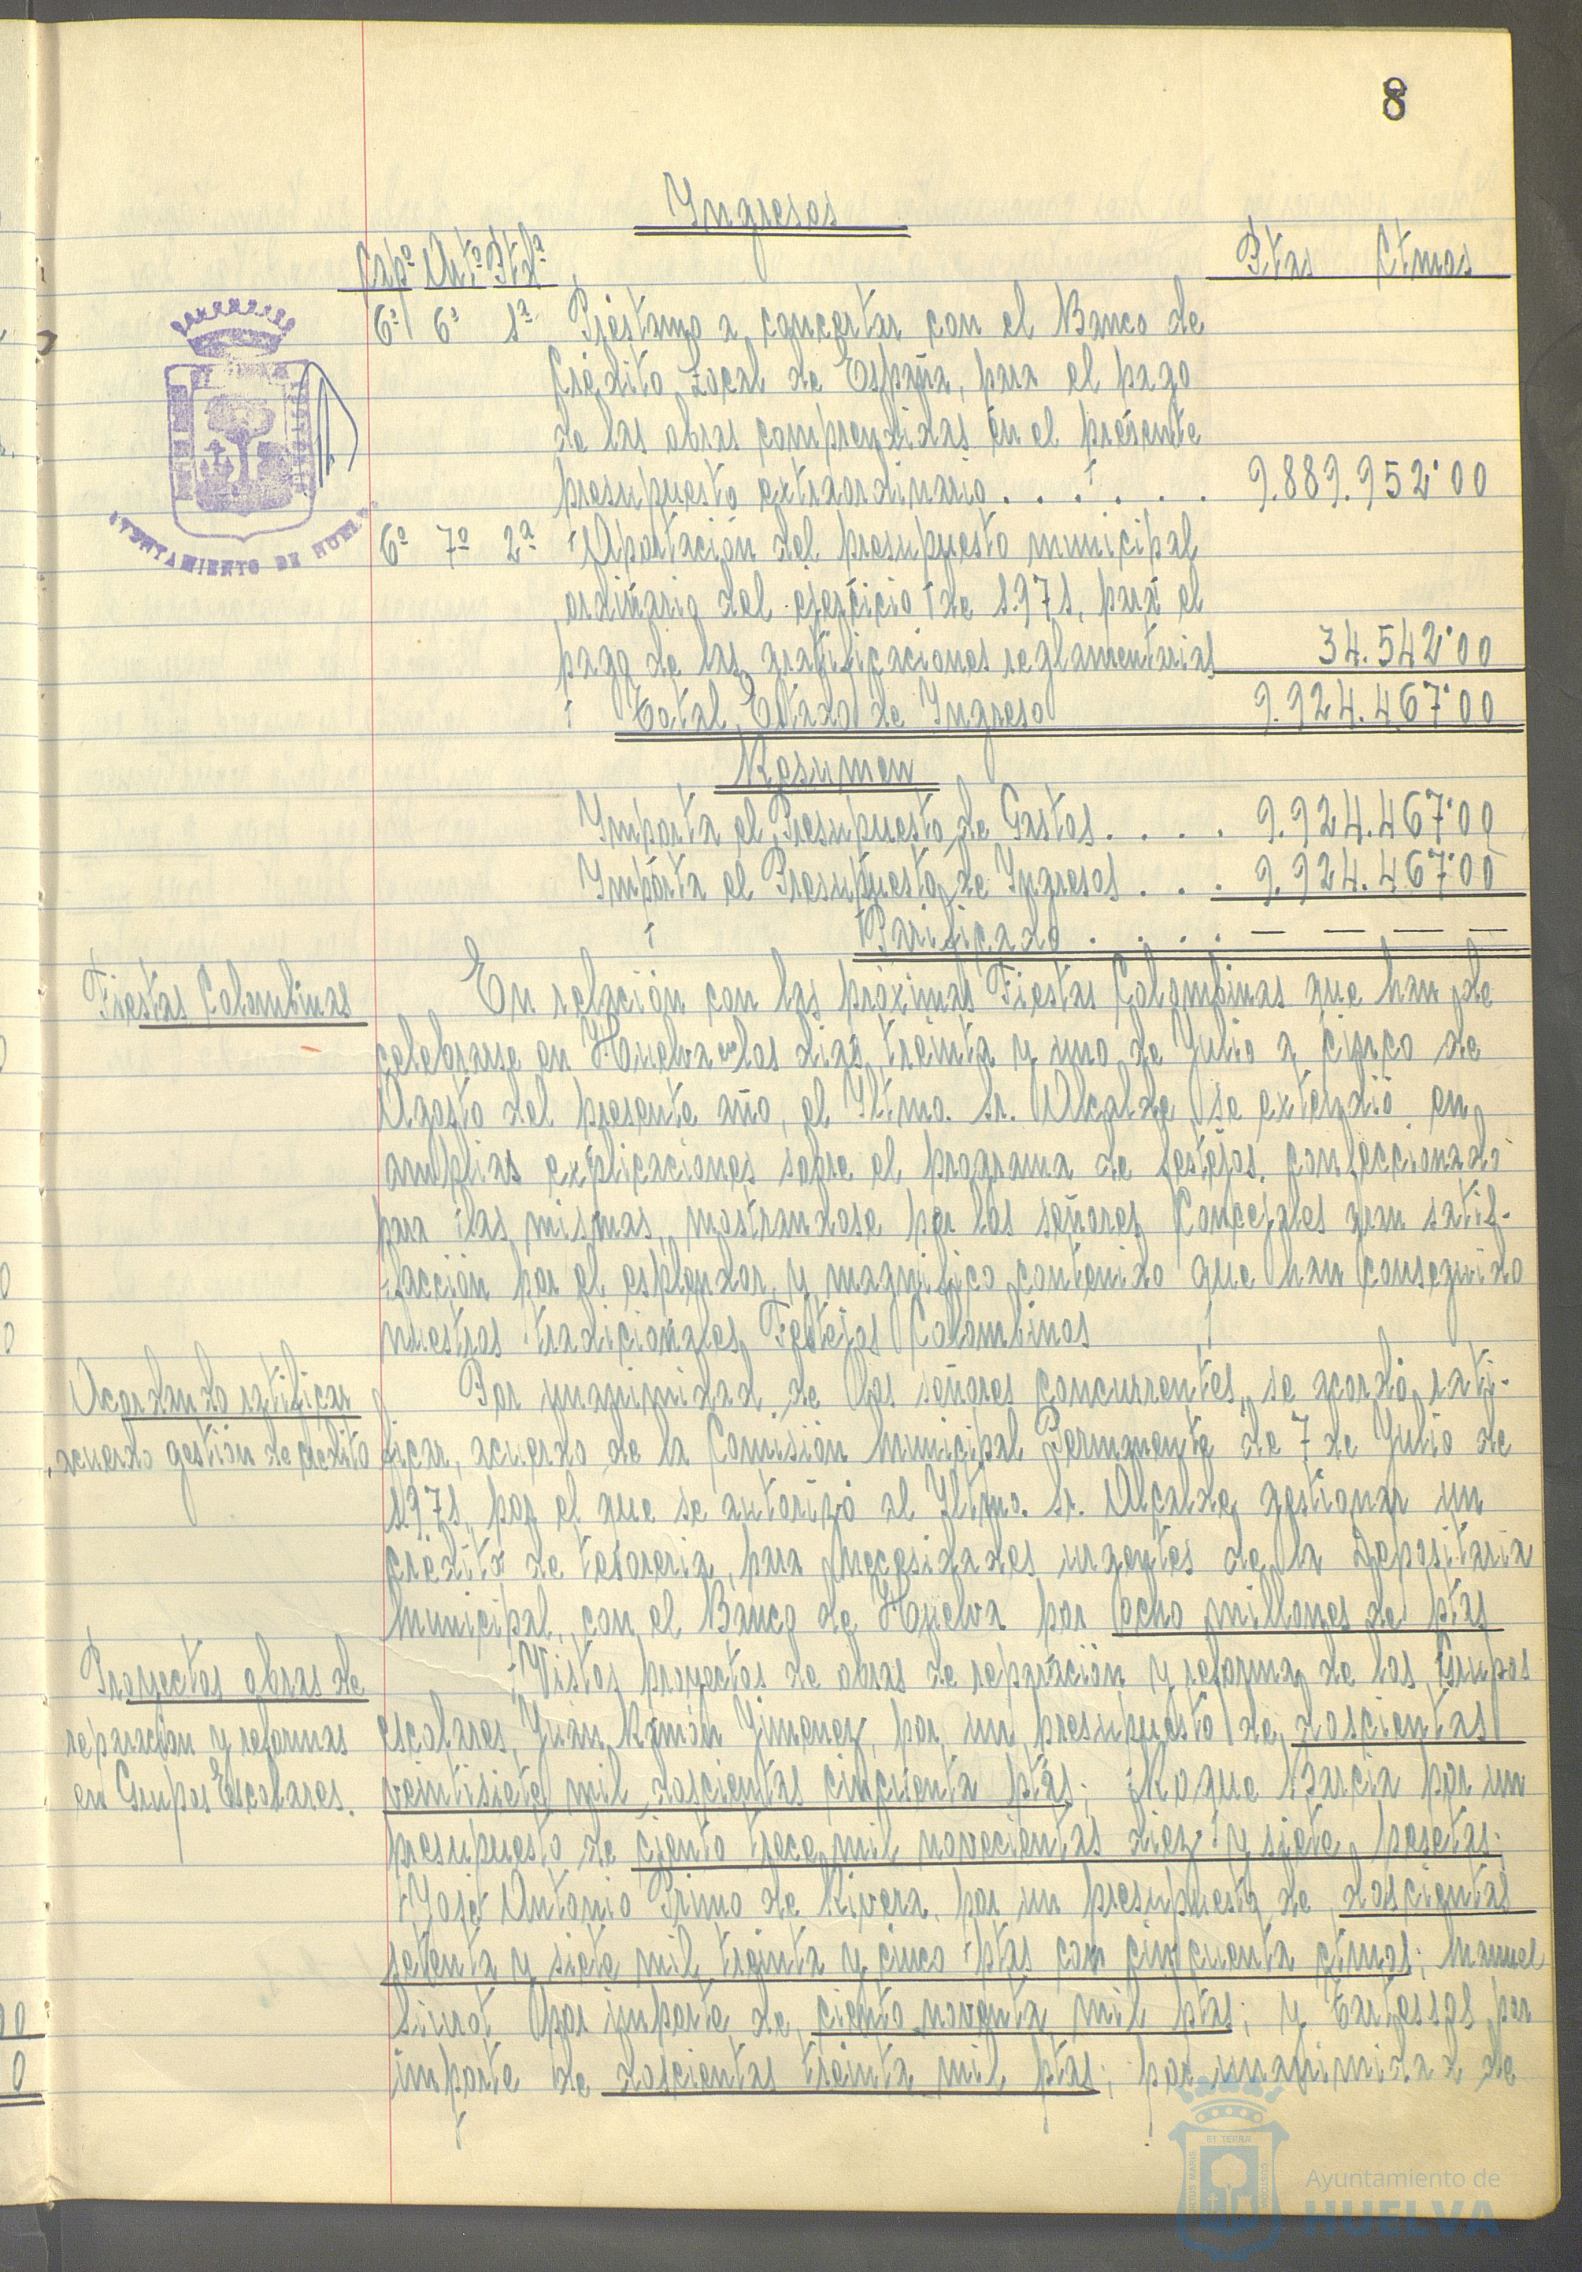 8
Ingresos
Capº Artº Ptdª Ptas Ctmos
6º 6º 1ª Préstamo a concertar con el Banco de
Crédito Local de España, para el pago
de las obras comprendidas en el presente
presupuesto extraordinario . . . . . . 9.889.952'00
6º 7º 2ª Aportación del presupuesto municipal
ordinario del ejercicio de 1.971, para el
pago de las gratificaciones reglamentarias 34.542'00
Total Estado de Ingreso 9.924.467'00
Resumen
Importa el Presupuesto de Gastos . . . . 9.924.467'00
Importa el Presupuesto de Ingresos . . . 9.924.467'00
Parificado . . . . — — — —
Fiestas Colombinas
En relación con las próximas Fiestas Colombinas que han de
celebrarse en Huelva en los dias treinta y uno de Julio a cinco de
Agosto del presente año, el Iltmo. Sr. Alcalde, se extendió en
amplias explicaciones sobre el programa de festejos, confeccionado
para las mismas, mostrandose por los señores Concejales gran satis-
facción por el esplendor y magnifico contenido que han conseguido
nuestros tradicionales Festejos Colombinos
Acordando ratificar
acuerdo gestión de crédito
Por unanimidad de los señores concurrentes, se acordó rati-
ficar, acuerdo de la Comisión Municipal Permanente de 7 de Julio de
1.971, por el que se autorizó al Iltmo. Sr. Alcalde, gestionar un
crédito de tesoreria, para necesidades urgentes de la Depositaria
Municipal, con el Banco de Huelva por ocho millones de ptas
Proyectos obras de
reparación y reformas
en Grupos Escolares.
Vistos proyectos de obras de reparación y reforma de los Grupos
escolares, Juan Ramón Jimenez, por un presupuesto de doscientas
veintisiete mil doscientas cincuenta ptas; Roque Barcia por un
presupuesto de ciento trece mil novecientas diez y siete pesetas;
José Antonio Primo de Rivera, por un presupuesto de doscientas
setenta y siete mil treinta y cinco ptas con cincuenta ctmos; Manuel
Siurot por importe de ciento noventa mil ptas; y Tartessos por
importe de doscientas treinta mil ptas; por unanimidad de
AYUNTAMIENTO DE HUELVA
Ayuntamiento de
HUELVA